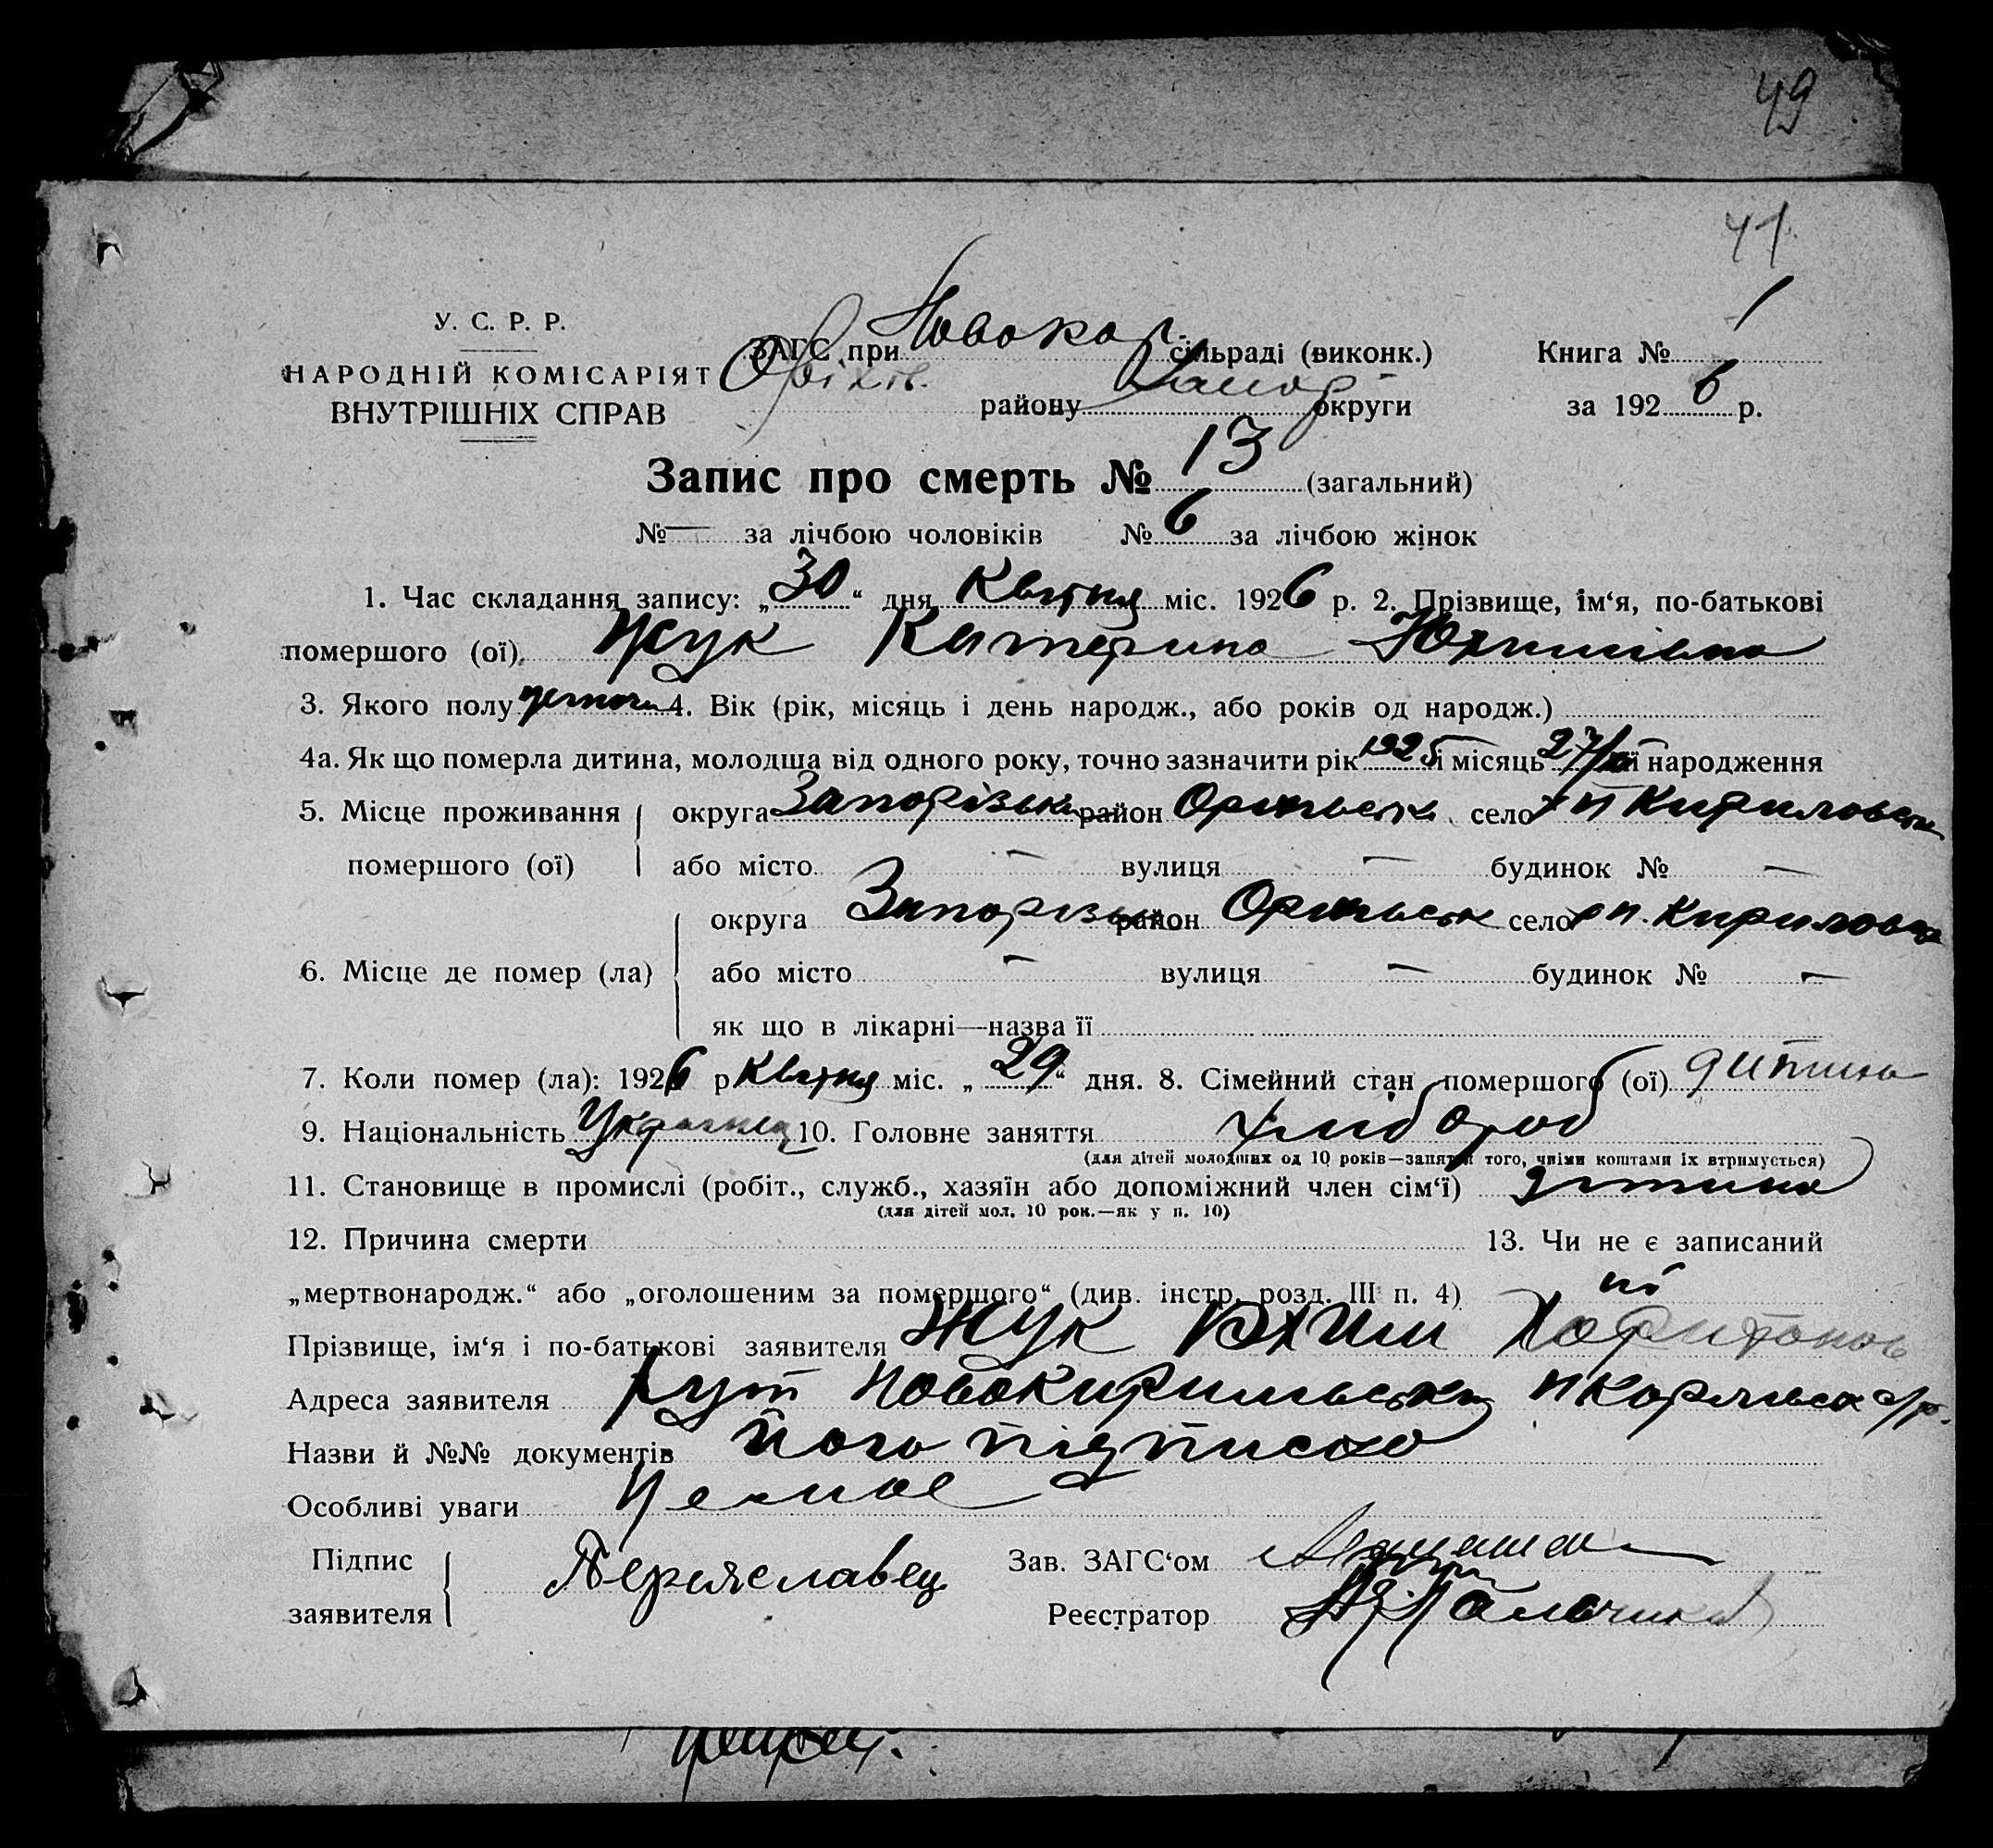 49
41
У. С. Р. Р.
НАРОДНІЙ КОМІСАРІЯТ
ВНУТРІШНІХ СПРАВ
ЗАГС при Новокар. сільраді (виконк.) Книга № 1
Оріхів. району Запор округи за 1926 р.
Запис про смерть № 13 (загальний)
№ — за лічбою чоловіків № 6 за лічбою жінок
1. Час складання запису: „30“ дня Квітня міс. 1926 р. 2. Прізвище, ім‘я, по-батькові
помершого (ої) Жук Катерина Юхимівна
3. Якого полу 4. Вік (рік, місяць і день народж., або років од народж.)
4а. Як що померла дитина, молодша від одного року, точно зазначити рік 1925 і місяць 27/ її народження
5. Місце проживання округа Запорізьк район село х п Кириловськ
помершого (ої) або місто — вулиця — будинок № —
округа Запорізьк район село х п. Кириловськ
6. Місце де помер (ла) або місто — вулиця — будинок № —
як що в лікарні—назва її
7. Коли помер (ла): 1926 р Квітня міс. „29“ дня. 8. Сімейний стан помершого (ої) дитина
9. Національність Українец 10. Головне заняття хлібороб
(для дітей молодших од 10 років—заняття того, чиїми коштами їх втримується)
11. Становище в промислі (робіт., служб., хазяїн або допоміжний член сім‘ї) дитина
(для дітей мол. 10 рок.—як у п. 10)
12. Причина смерти 13. Чи не є записаний
„мертвонародж.“ або „оголошеним за помершого“ (див. інстр. розд. III п. 4) ні
Прізвище, ім‘я і по-батькові заявителя Жук Юхим Харитонов
Адреса заявителя хут Новокирильський с/р.
Назви й №№ документів його підписко
Особливі уваги Немае
Підпис Переяславец Зав. ЗАГС‘ом
заявителя Реєстратор